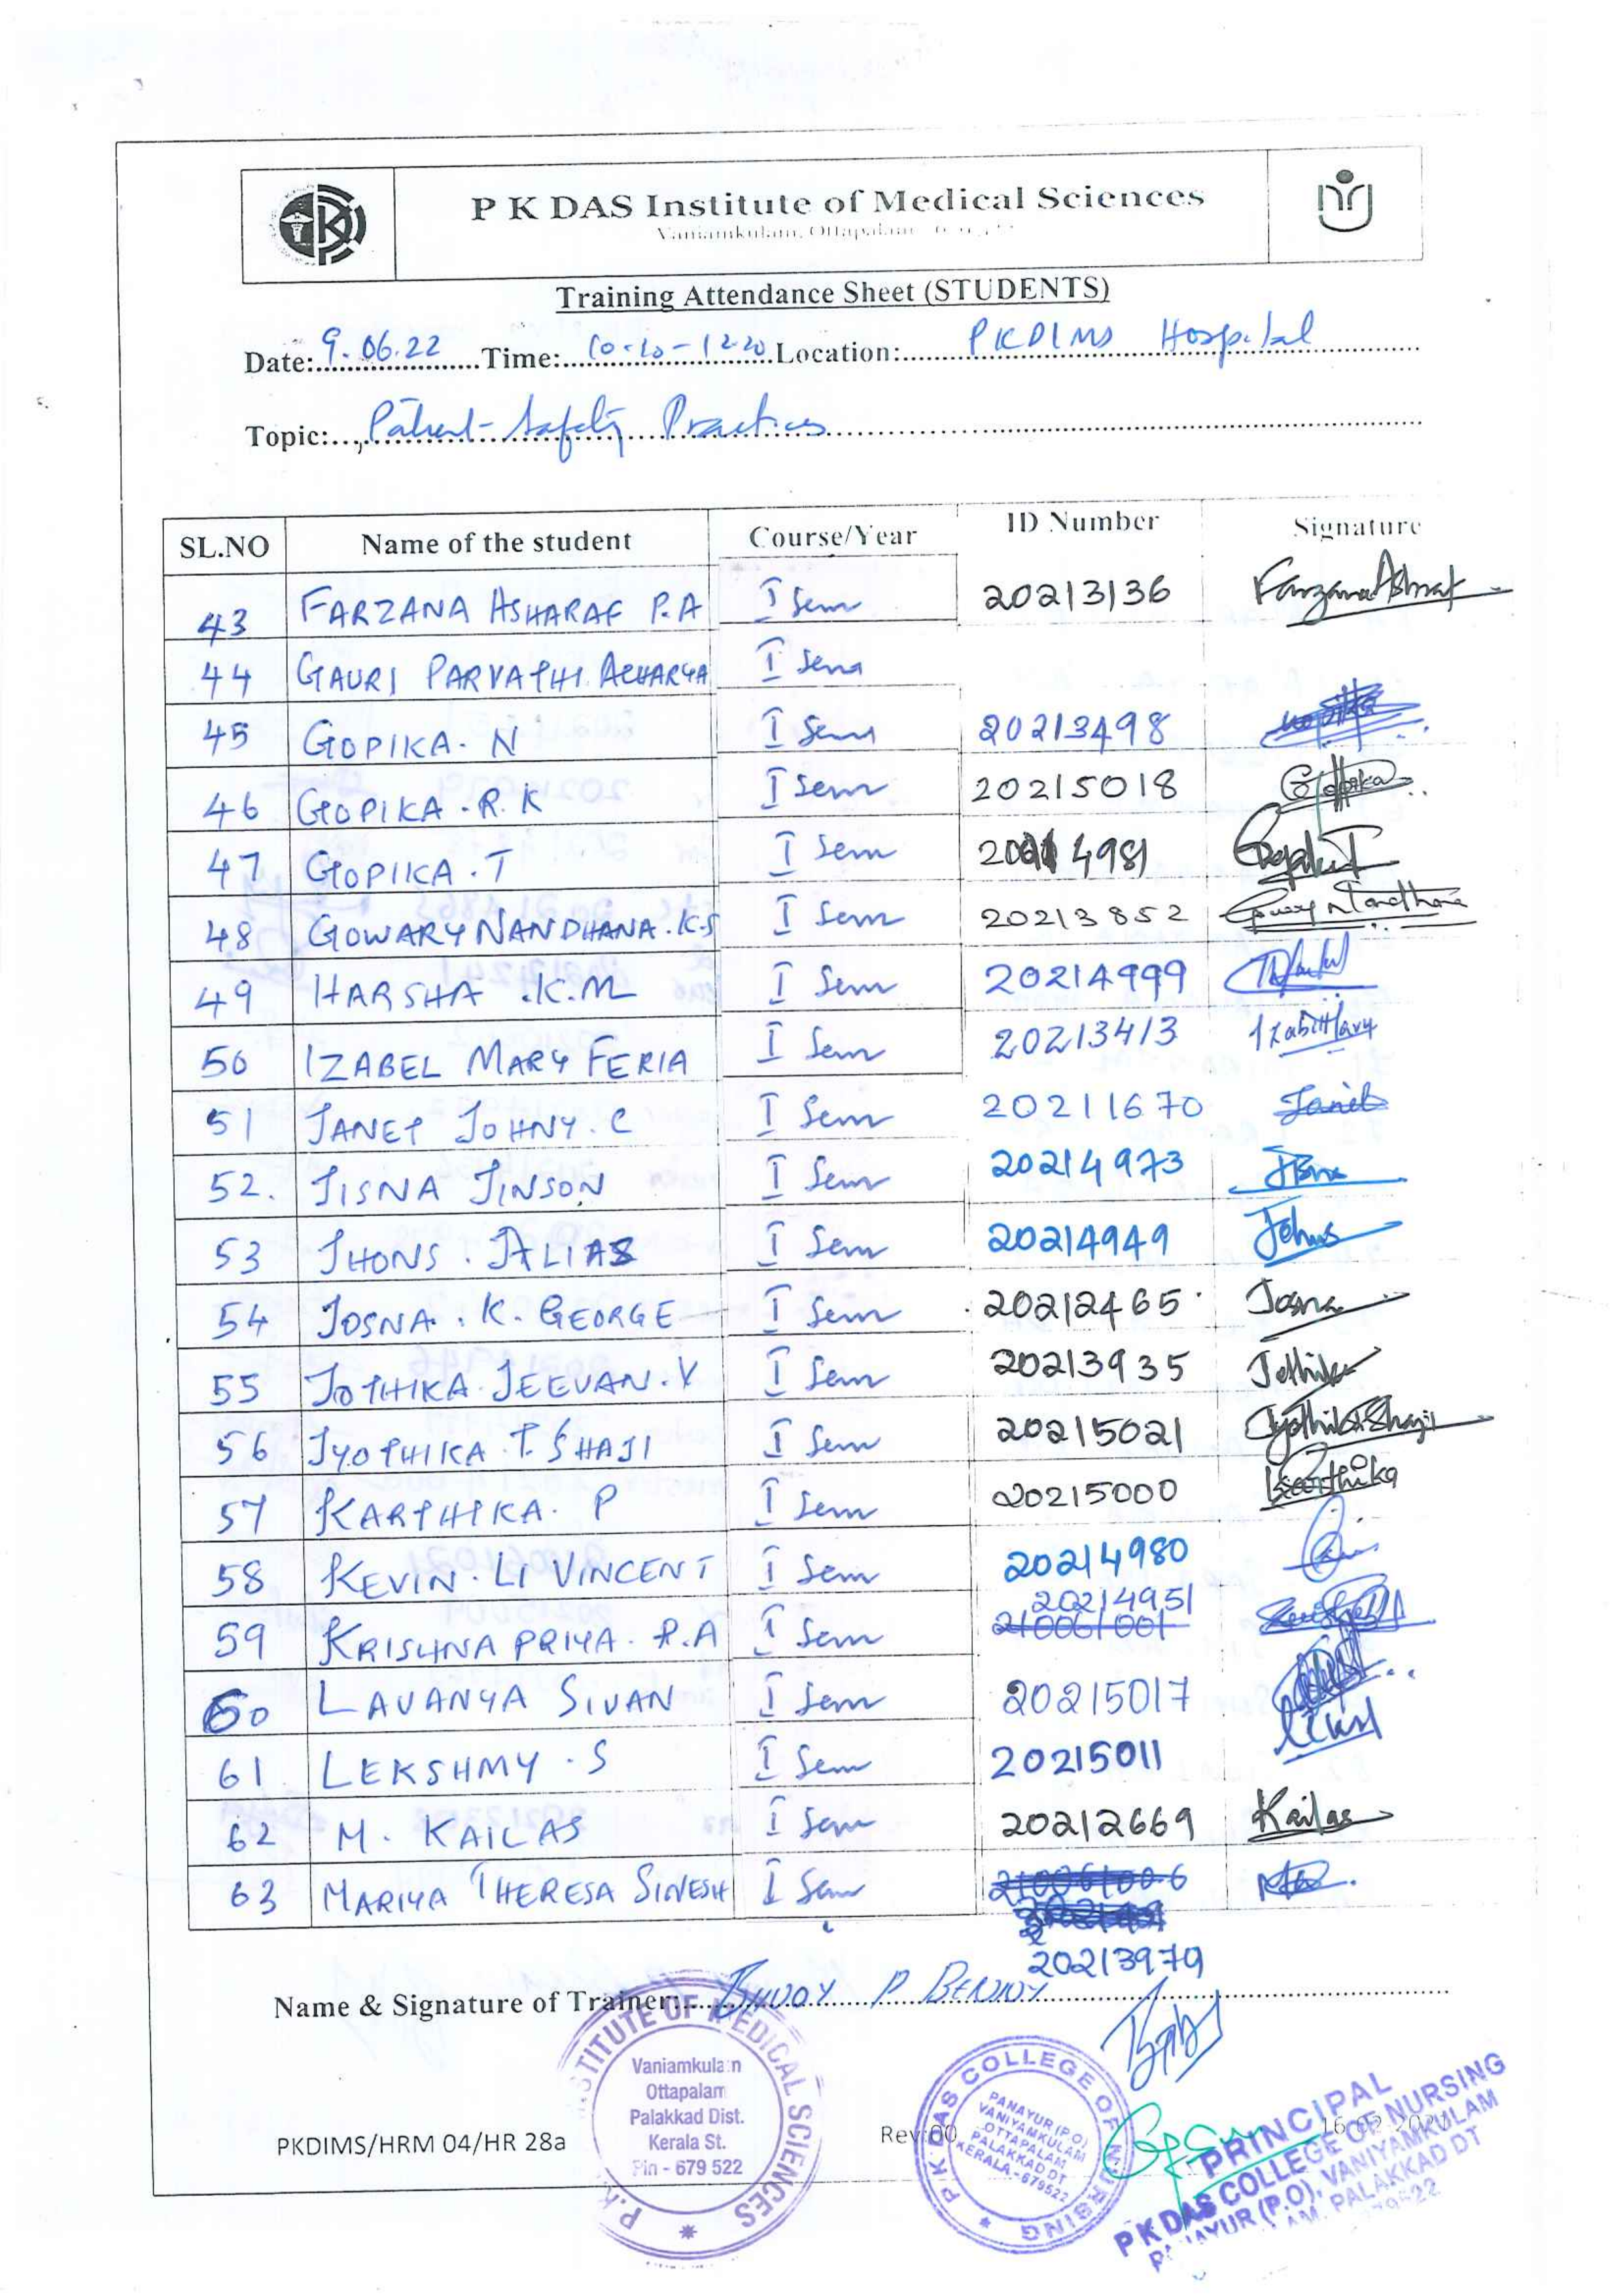 P K DAS Institute of Medical Sciences
Vaniamkulam, Ottapalam
Training Attendance Sheet (STUDENTS)
Date: 9.06.22 Time: 10.10-12.20 Location: PKDIMS Hospital
Topic: Patient Safety Practices
SL.NO Name of the student Course/Year ID Number Signature
43 FARZANA ASHARAF P.A I Sem 20213136 Farzana Ashraf
44 GAURI PARVATHI ACHARYA I Sem
45 GOPIKA. N I Sem 20213498
46 GOPIKA. R. K I Sem 20215018 Gopika
47 GOPIKA. T I Sem 4981
48 GOWARY NANDHANA. K.S I Sem 20213852
49 HARSHA .K.M I Sem 20214999
50 IZABEL MARY FERIA I Sem 20213413
51 JANET JOHNY. C I Sem 20211670 Janet
52. JISNA JINSON I Sem 20214973
53 JHONS. ALIAS I Sem 20214949 Johns
54 JOSNA. K. GEORGE I Sem 20212465 Josna
55 JOTHIKA JEEVAN. V I Sem 20213935 Jothika
56 JYOTHIKA T. SHAJI I Sem 20215021 Jyothika Shaji
57 KARTHIKA. P I Sem 20215000 Karthika
58 KEVIN. LI VINCENT I Sem 20214980
59 KRISHNA PRIYA. P.A I Sem 20214951
210061001
60 LAVANYA SIVAN I Sem 20215017
61 LEKSHMY. S I Sem 20215011
62 M. KAILAS I Sem 20212669 Kailas
63 MARIYA THERESA SINESH I Sem 210061006
20213979
Name & Signature of Trainer: BENNY
PKDIMS/HRM 04/HR 28a Rev:00 16.02.2021
INSTITUTE OF MEDICAL SCIENCES
Vaniamkulam
Ottapalam
Palakkad Dist.
Kerala St.
Pin - 679 522
P K DAS COLLEGE OF NURSING
PANAYUR (P.O)
VANIYAMKULAM
OTTAPALAM
PALAKKAD DT
KERALA - 679522
PRINCIPAL
P K DAS COLLEGE OF NURSING
PANAYUR (P.O), VANIYAMKULAM
PALAKKAD DT